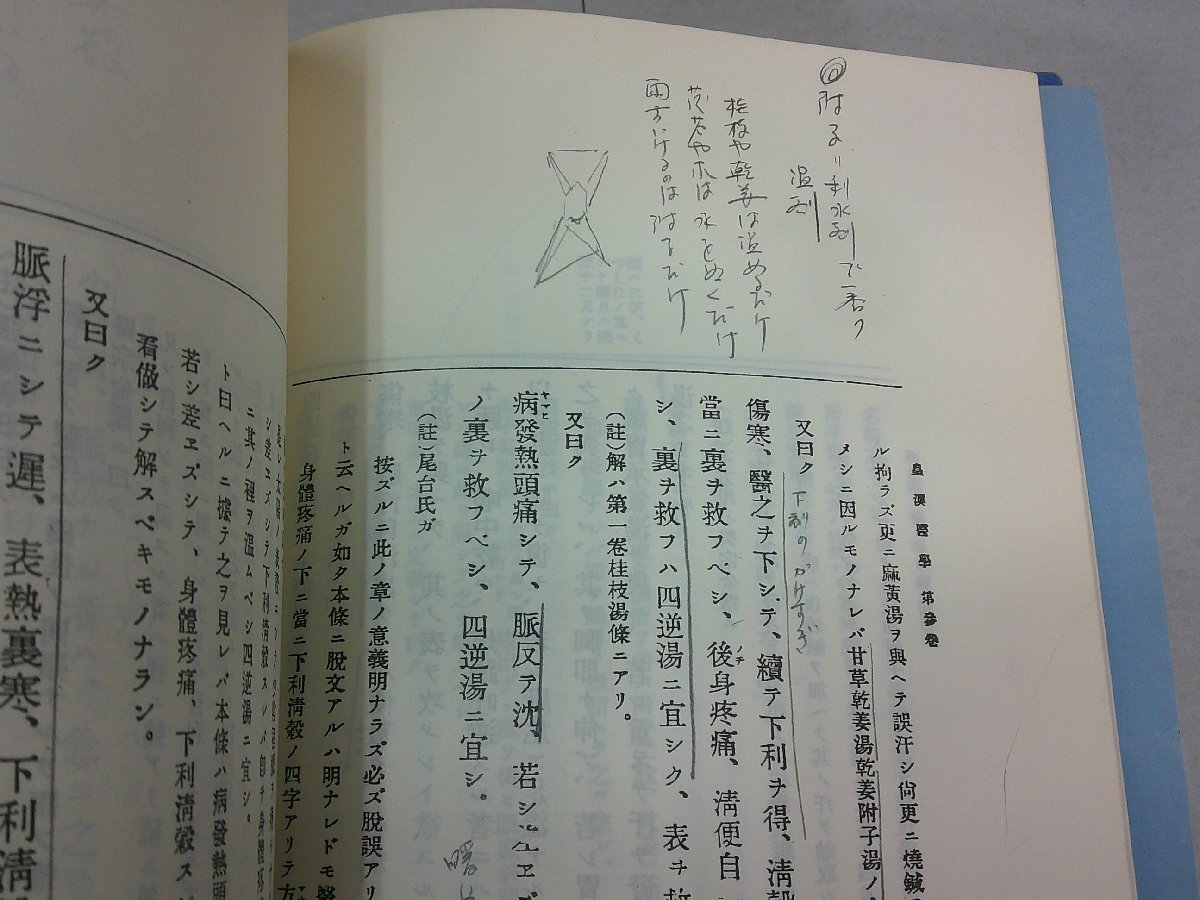 ◎附子ハ利水剤で一番ク
温剤
桂枝や乾姜は温めるだけ
茯苓や朮は水をぬくだけ
両方いけるのは附子だけ
皇漢醫學第參卷
ル拘ラズ更ニ麻黃湯ヲ與ヘテ誤汗シ尙更ニ燒鍼
メシニ因ルモノナレバ甘草乾姜湯乾姜附子湯ノ
又曰ク
下剤のかけすぎ
傷寒、醫之ヲ下シテ、續テ下利ヲ得、淸穀
當ニ裏ヲ救フベシ、後身疼痛、淸便自
ノチ
シ、裏ヲ救フハ四逆湯ニ宜シク、表ヲ救
(註)解ハ第一卷桂枝湯條ニアリ。
又曰ク
病發熱頭痛シテ、脈反テ沈、若シ
ノ裏ヲ救フベシ、四逆湯ニ宜シ。
(註)尾台氏ガ
按ズルニ此ノ章ノ意義明ナラズ必ズ脫誤アリ
ト云ヘルガ如タ本條ニ脫文アルハ明ナレドモ
身體疼痛ノ下ニ當ニ下利淸穀ノ四字アリテ方
シ差エズシテ下利淸穀スレバ卽チ身體疼
ニ其ノ裡ヲ溫ムベシ四逆湯ニ宜シ。
ト曰ヘルニ據テ之ヲ見レバ本條ハ病發熱頭
若シ差エズシテ、身體疼痛、下利淸穀ス
看做シテ解スベキモノナラン。
又曰ク
脈浮ニシテ遲、表熱裏寒、下利淸